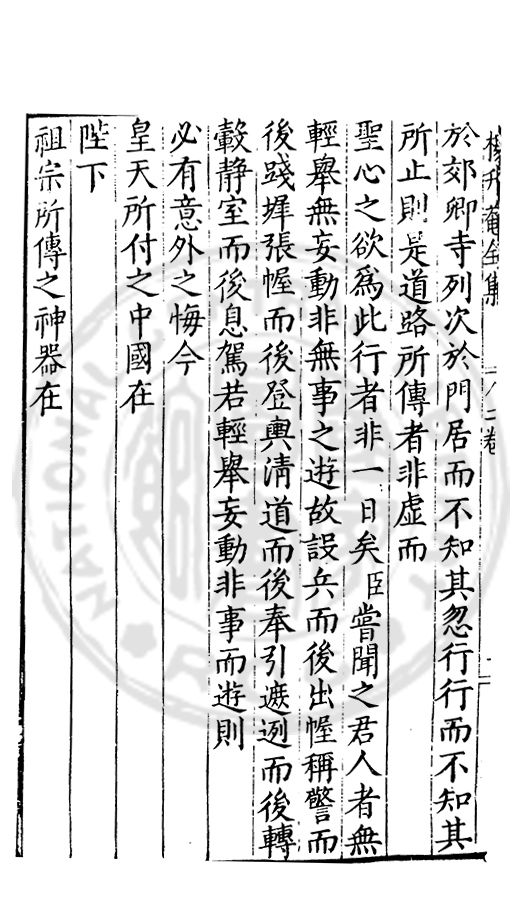 楊升菴全集　卷
於郊卿寺列次於門居而不知其忽行行而不知其
所止則是道路所傳者非虛而
聖心之欲爲此行者非一日矣臣嘗聞之君人者無
輕舉無妄動非無事之遊故設兵而後出幄稱警而
後踐墀張幄而後登輿淸道而後奉引遮迾而後轉
轂静室而後息駕若輕舉妄動非事而遊則
必有意外之悔今
皇天所付之中國在
陛下
祖宗所傳之神器在
NATIONAL